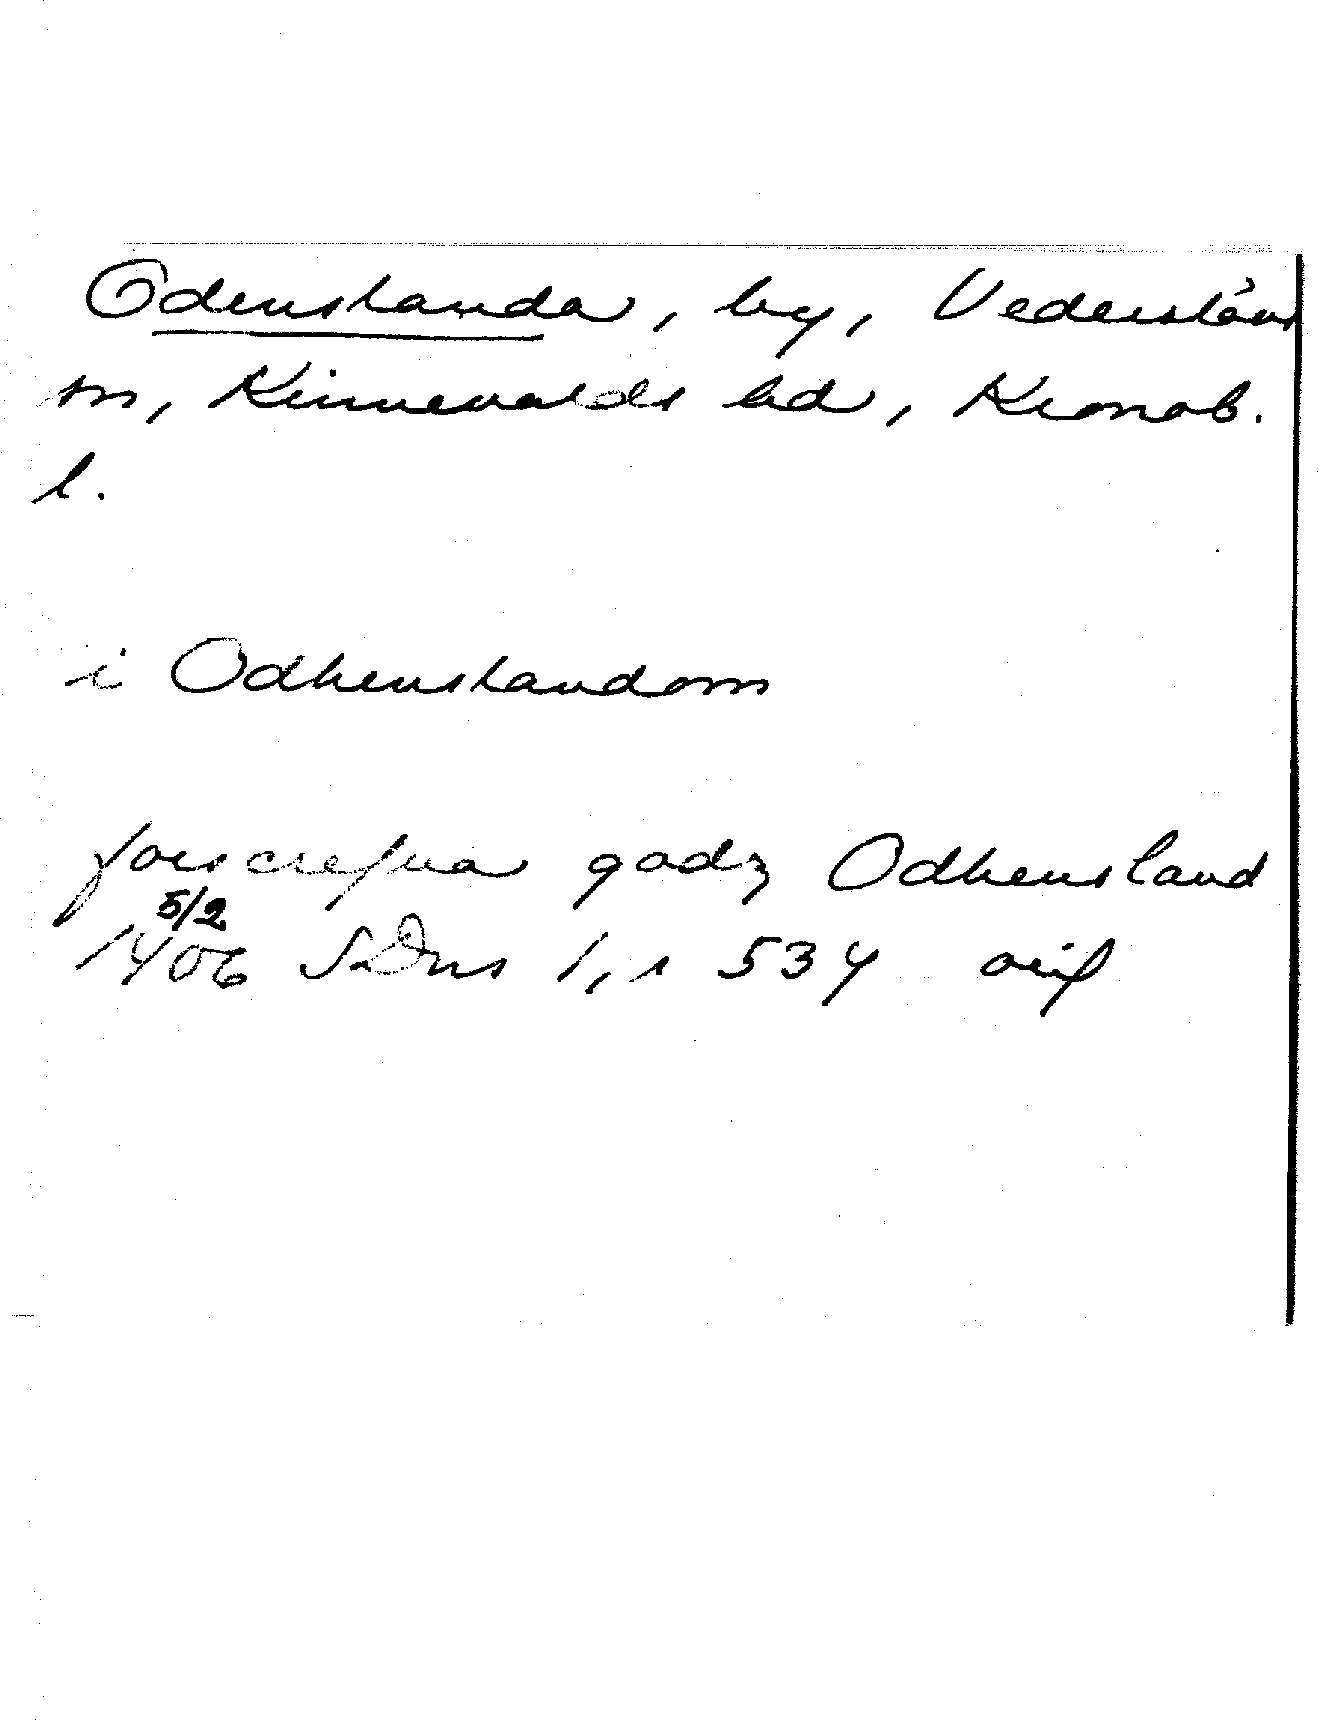 Odenslanda, by, Vederslöv
sn, Kinnevalds hd, Kronob.
l.
i Odhenslandom
forscrefna godz Odhensland
5/2
1406 SDns 1, s 534 orig